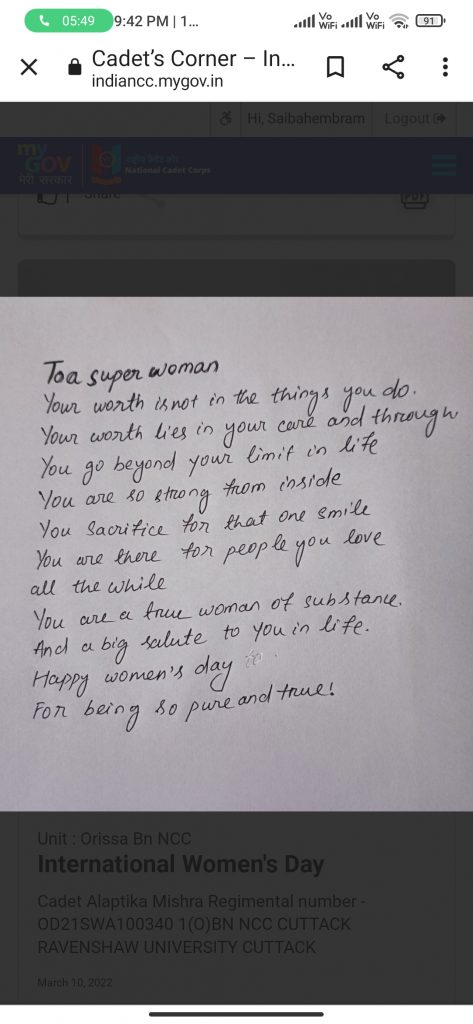 05:49 9:42 PM | 1... Vo WiFi Vo WiFi 91
Cadet's Corner – In...
indiancc.mygov.in
Hi, Saibahembram Logout
my
GOV
मेरी सरकार
राष्ट्रीय कैडेट कोर
National Cadet Corps
Share PDF
To a super woman
Your worth is not in the things you do.
Your worth lies in your care and through
You go beyond your limit in life
You are so strong from inside
You Sacrifice for that one smile
You are there for people you love
all the while
You are a true woman of substance.
And a big salute to you in life.
Happy women's day
For being so pure and true!
Unit : Orissa Bn NCC
International Women's Day
Cadet Alaptika Mishra Regimental number -
OD21SWA100340 1(O)BN NCC CUTTACK
RAVENSHAW UNIVERSITY CUTTACK
March 10, 2022